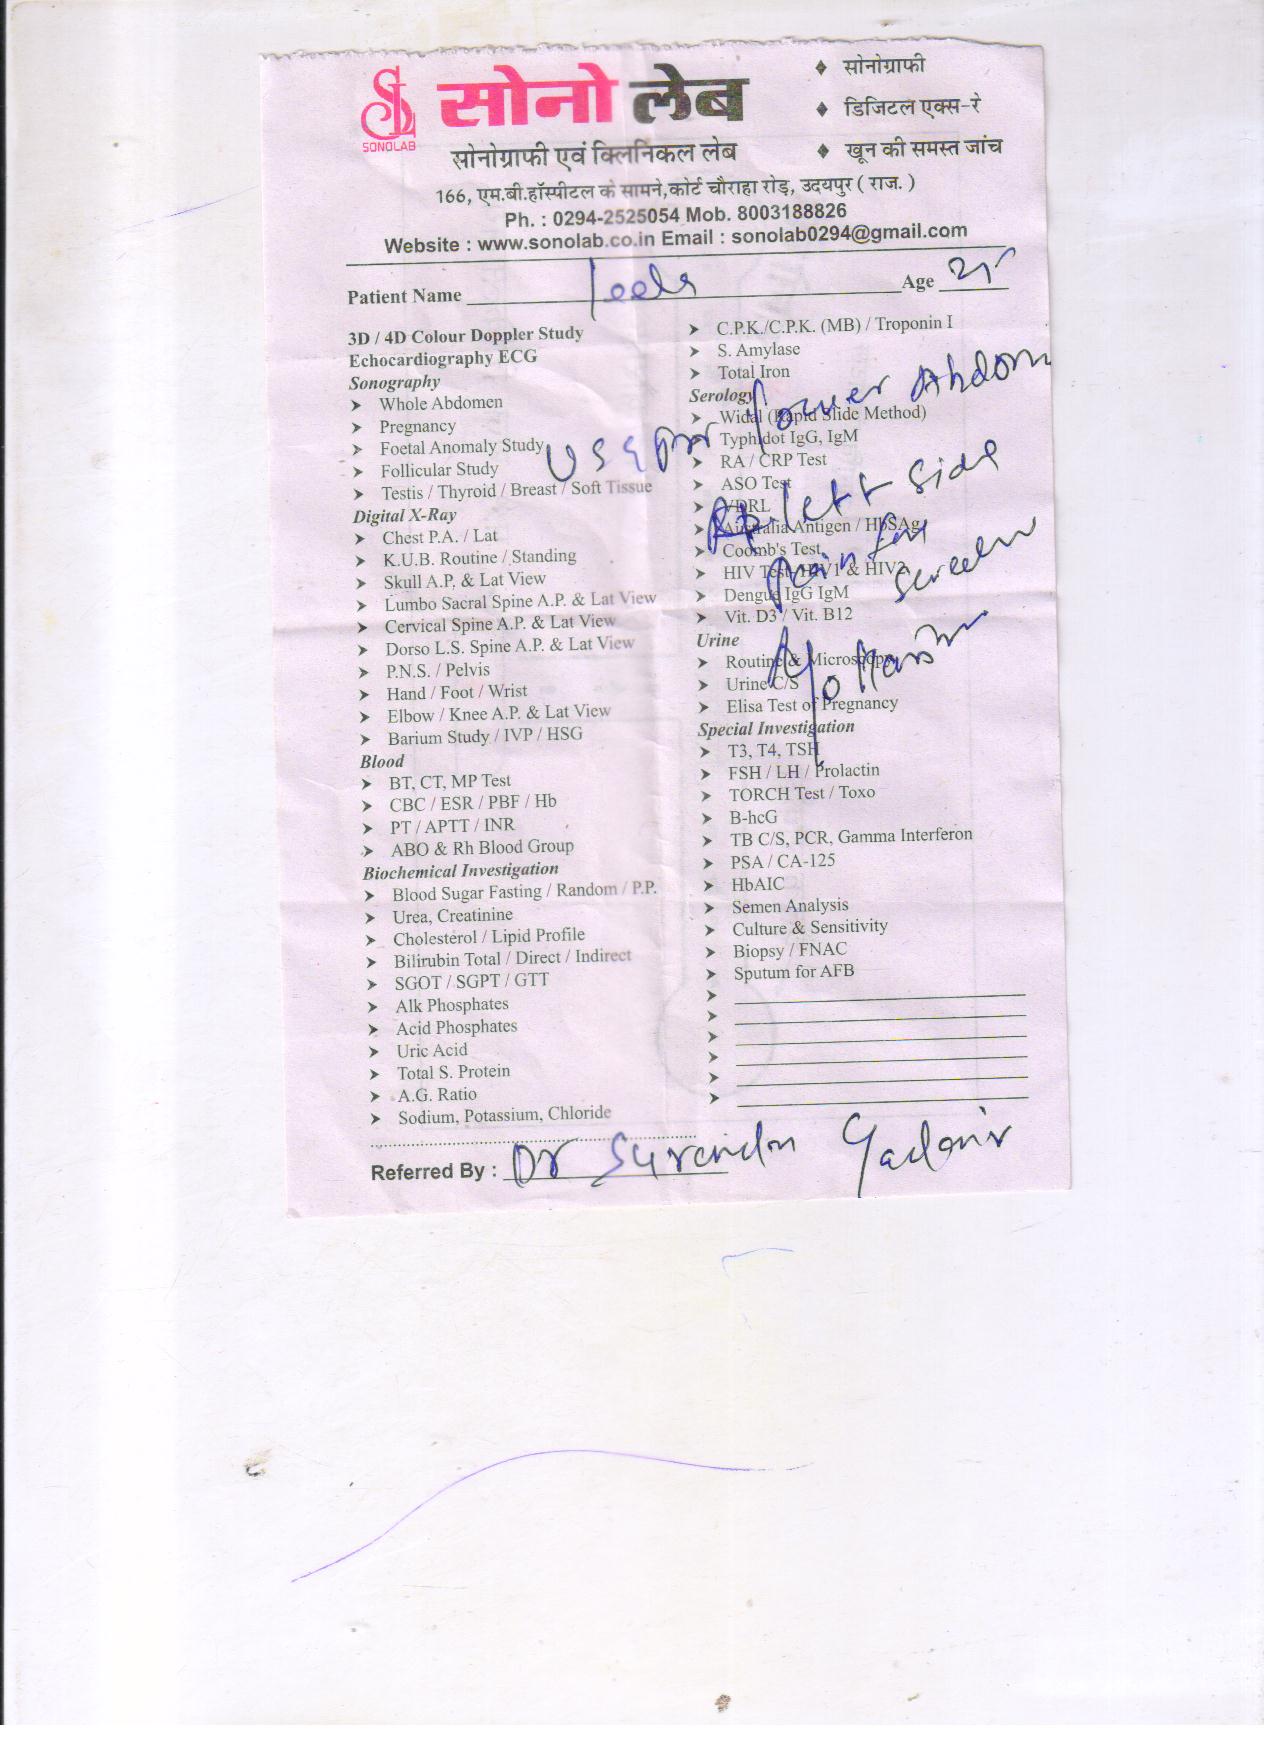 सोनो लेब
SONOLAB
◆ सोनोग्राफी
◆ डिजिटल एक्स-रे
◆ खून की समस्त जांच
सोनोग्राफी एवं क्लिनिकल लेब
166, एम.बी.हॉस्पीटल के सामने,कोर्ट चौराहा रोड़, उदयपुर ( राज. )
Ph. : 0294-2525054 Mob. 8003188826
Website : www.sonolab.co.in Email : sonolab0294@gmail.com
Patient Name Leela Age
3D / 4D Colour Doppler Study
Echocardiography ECG
Sonography
➤ Whole Abdomen
➤ Pregnancy
➤ Foetal Anomaly Study
➤ Follicular Study
➤ Testis / Thyroid / Breast / Soft Tissue
Digital X-Ray
➤ Chest P.A. / Lat
➤ K.U.B. Routine / Standing
➤ Skull A.P. & Lat View
➤ Lumbo Sacral Spine A.P. & Lat View
➤ Cervical Spine A.P. & Lat View
➤ Dorso L.S. Spine A.P. & Lat View
➤ P.N.S. / Pelvis
➤ Hand / Foot / Wrist
➤ Elbow / Knee A.P. & Lat View
➤ Barium Study / IVP / HSG
Blood
➤ BT, CT, MP Test
➤ CBC / ESR / PBF / Hb
➤ PT / APTT / INR
➤ ABO & Rh Blood Group
Biochemical Investigation
➤ Blood Sugar Fasting / Random / P.P.
➤ Urea, Creatinine
➤ Cholesterol / Lipid Profile
➤ Bilirubin Total / Direct / Indirect
➤ SGOT / SGPT / GTT
➤ Alk Phosphates
➤ Acid Phosphates
➤ Uric Acid
➤ Total S. Protein
➤ A.G. Ratio
➤ Sodium, Potassium, Chloride
➤ C.P.K./C.P.K. (MB) / Troponin I
➤ S. Amylase
➤ Total Iron
Serology
➤ Widal (Rapid Slide Method)
➤ Typhidot IgG, IgM
➤ RA / CRP Test
➤ ASO Test
➤ VDRL
➤ Australia Antigen / HbSAg
➤ Coomb's Test
➤ HIV Test- HIV1 & HIV2
➤ Dengue IgG IgM
➤ Vit. D3 / Vit. B12
Urine
➤ Routine & Microscopy
➤ Urine C/S
➤ Elisa Test of Pregnancy
Special Investigation
➤ T3, T4, TSH
➤ FSH / LH / Prolactin
➤ TORCH Test / Toxo
➤ B-hcG
➤ TB C/S, PCR, Gamma Interferon
➤ PSA / CA-125
➤ HbAIC
➤ Semen Analysis
➤ Culture & Sensitivity
➤ Biopsy / FNAC
➤ Sputum for AFB
USG for Lower Abdom
left side
Pain for
Screen
Referred By : Dr Surendra